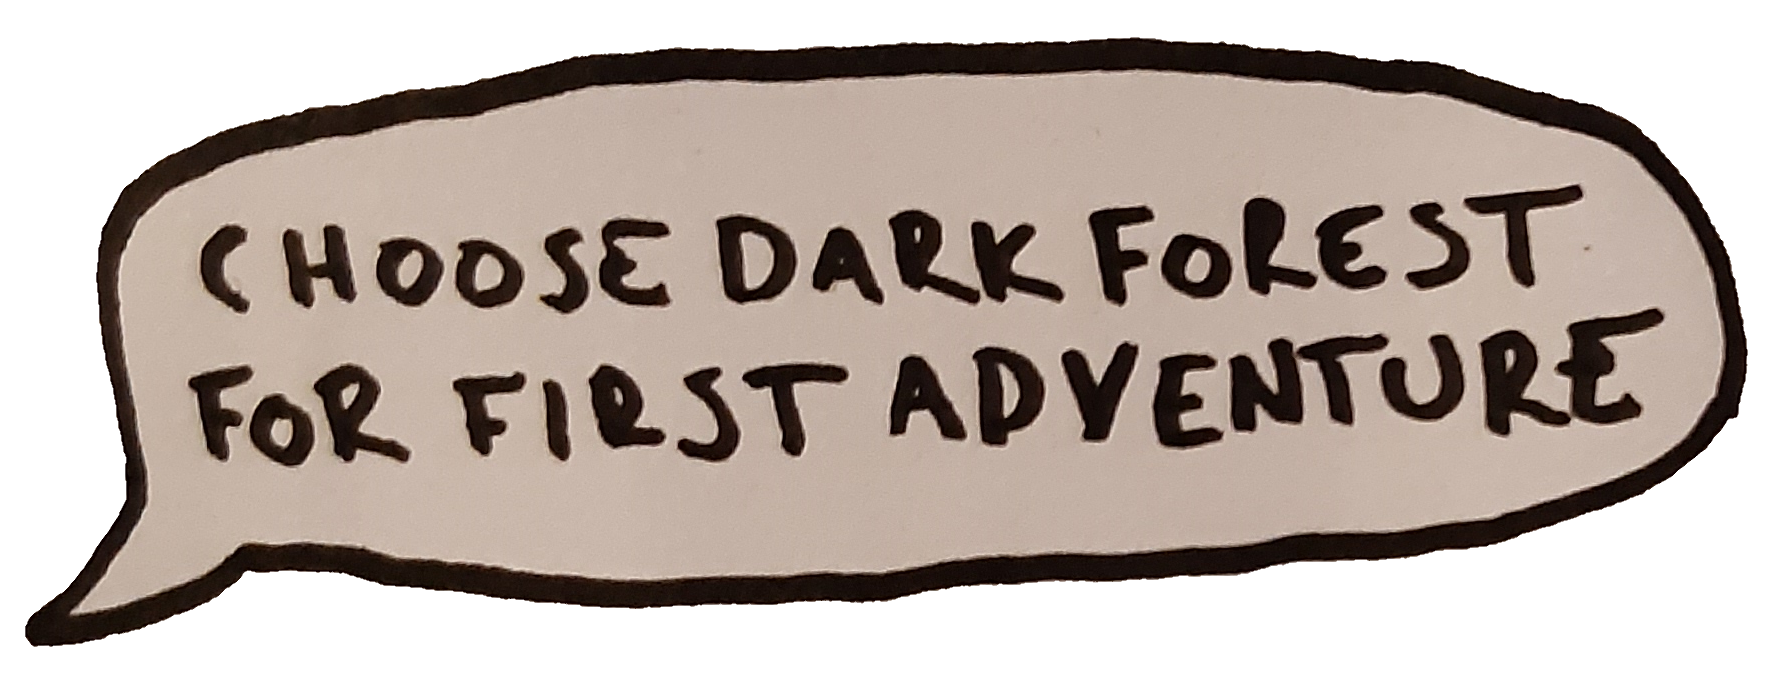 CHOOSE DARK FOREST
FOR FIRST ADVENTURE